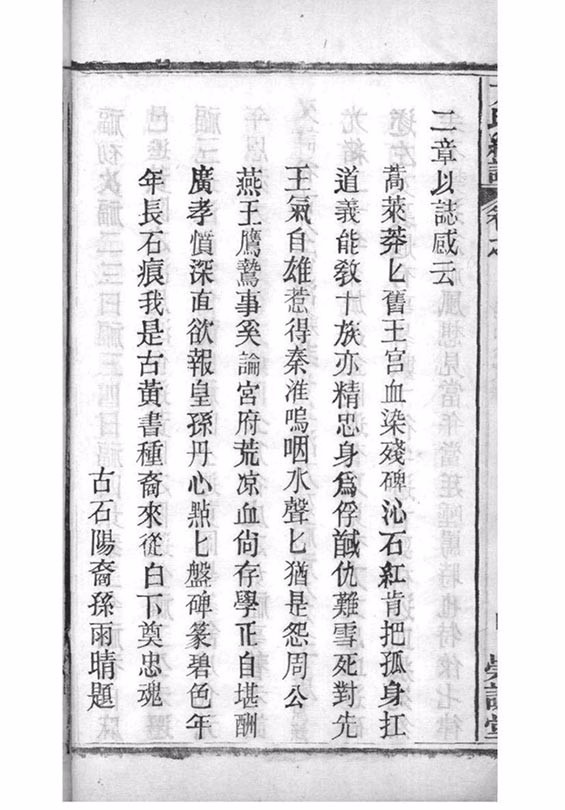 二章以誌感云
蒿萊莽匕舊王宫血染殘碑沁石紅肯把孤身扛
道義能敎十族亦精忠身爲俘馘仇難雪死對先
王氣自雄惹得秦淮嗚咽水聲匕猶是怨周公
燕王鷹鷙事奚論宮府荒凉血尙存學正自堪酬
廣孝憤深直欲報皇孫丹心㸃匕盤碑篆碧色年
年長石痕我是古黃書種裔來從白下奠忠魂
古石陽裔孫雨晴題